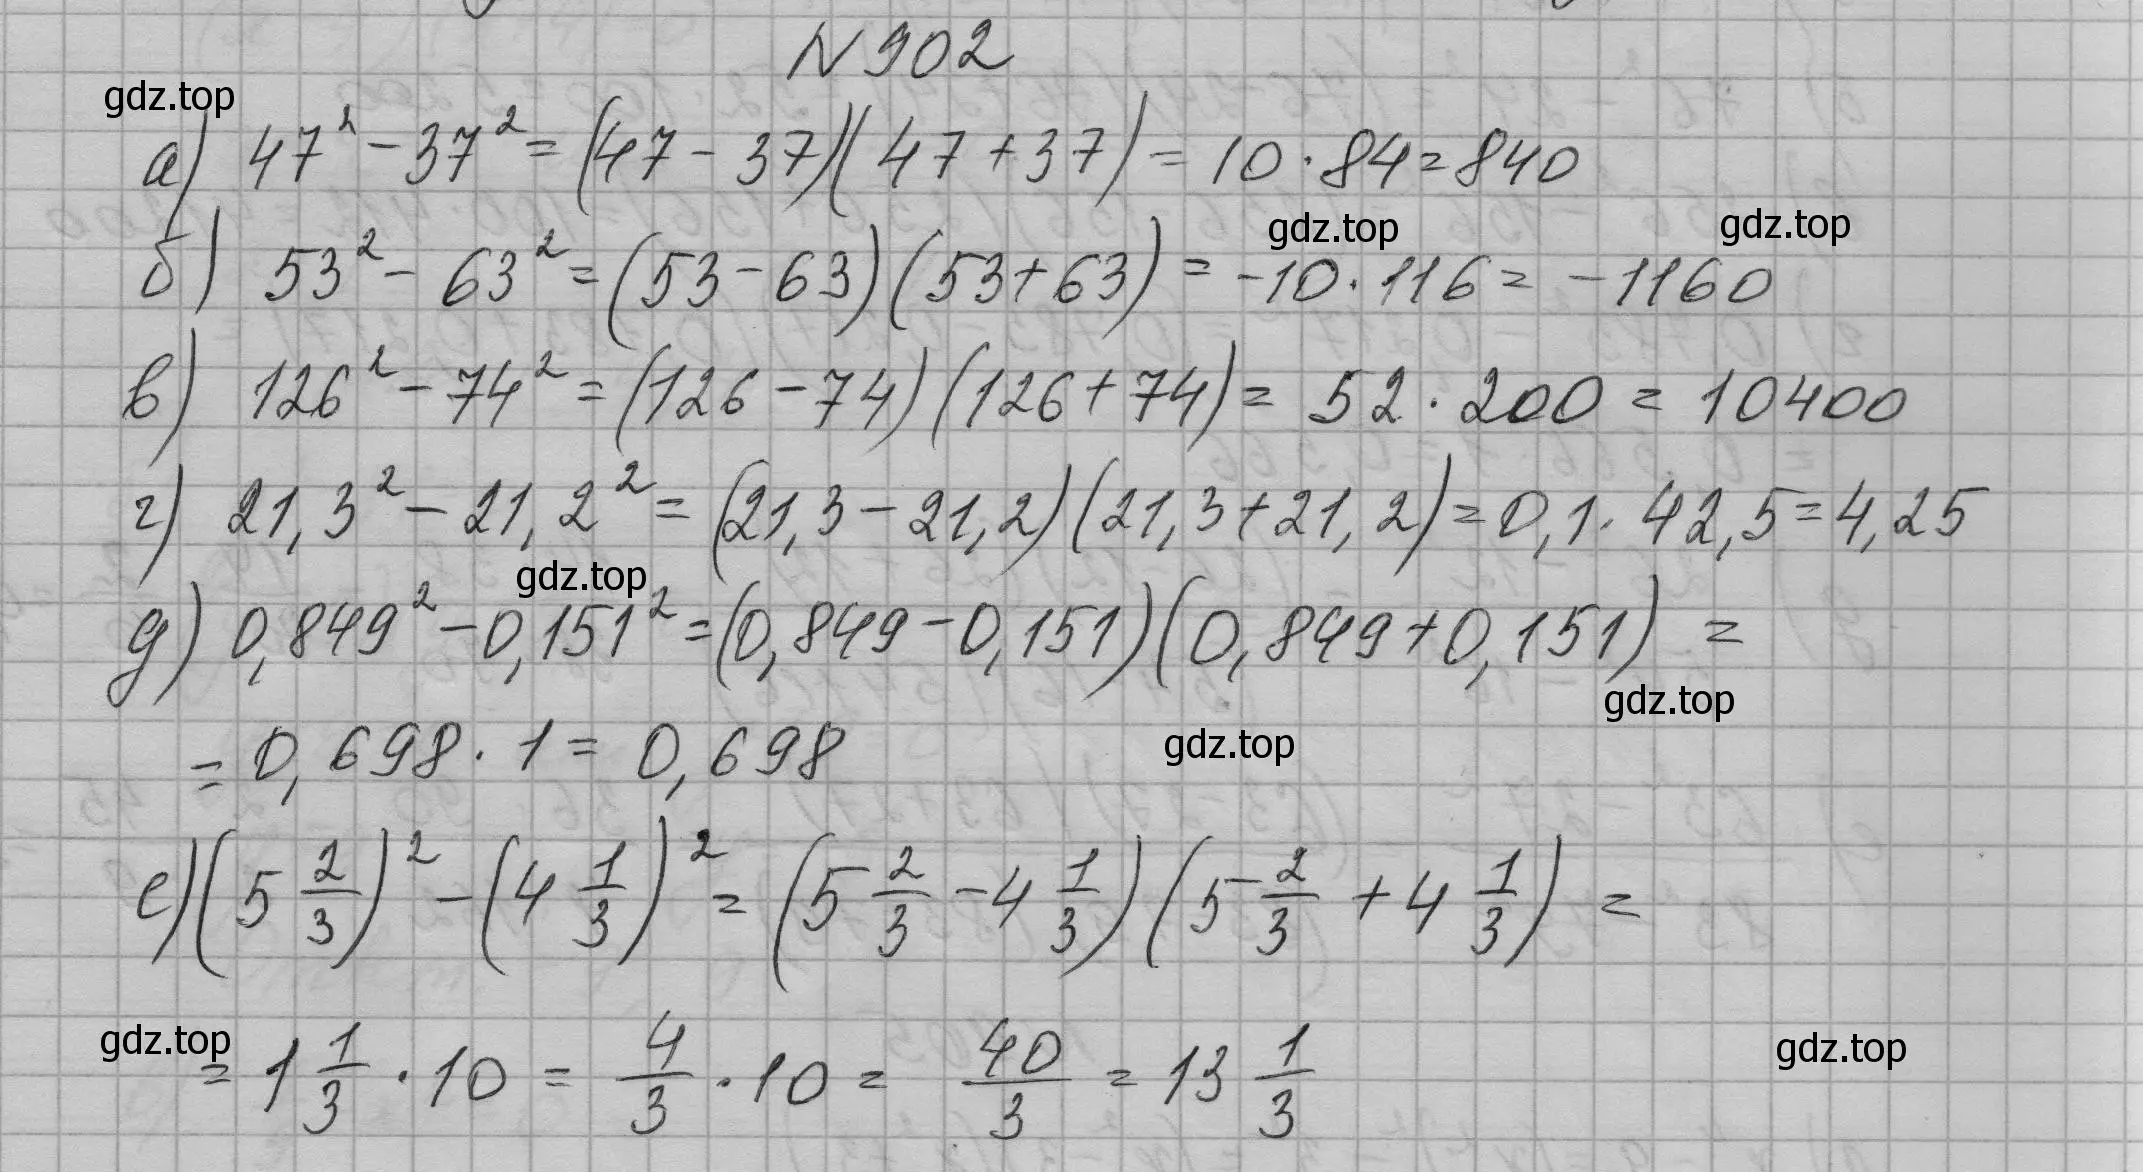 N 902
gdz.top
а) 47² − 37² = (47 − 37)(47 + 37) = 10 · 84 = 840
gdz.top
gdz.top
б) 53² − 63² = (53 − 63)(53 + 63) = −10 · 116 = −1160
в) 126² − 74² = (126 − 74)(126 + 74) = 52 · 200 = 10400
г) 21,3² − 21,2² = (21,3 − 21,2)(21,3 + 21,2) = 0,1 · 42,5 = 4,25
gdz.top
д) 0,849² − 0,151² = (0,849 − 0,151)(0,849 + 0,151) =
gdz.top
gdz.top
= 0,698 · 1 = 0,698
е) (5 2/3)² − (4 1/3)² = (5 2/3 − 4 1/3)(5 2/3 + 4 1/3) =
gdz.top
gdz.top
= 1 1/3 · 10 = 4/3 · 10 = 40/3 = 13 1/3